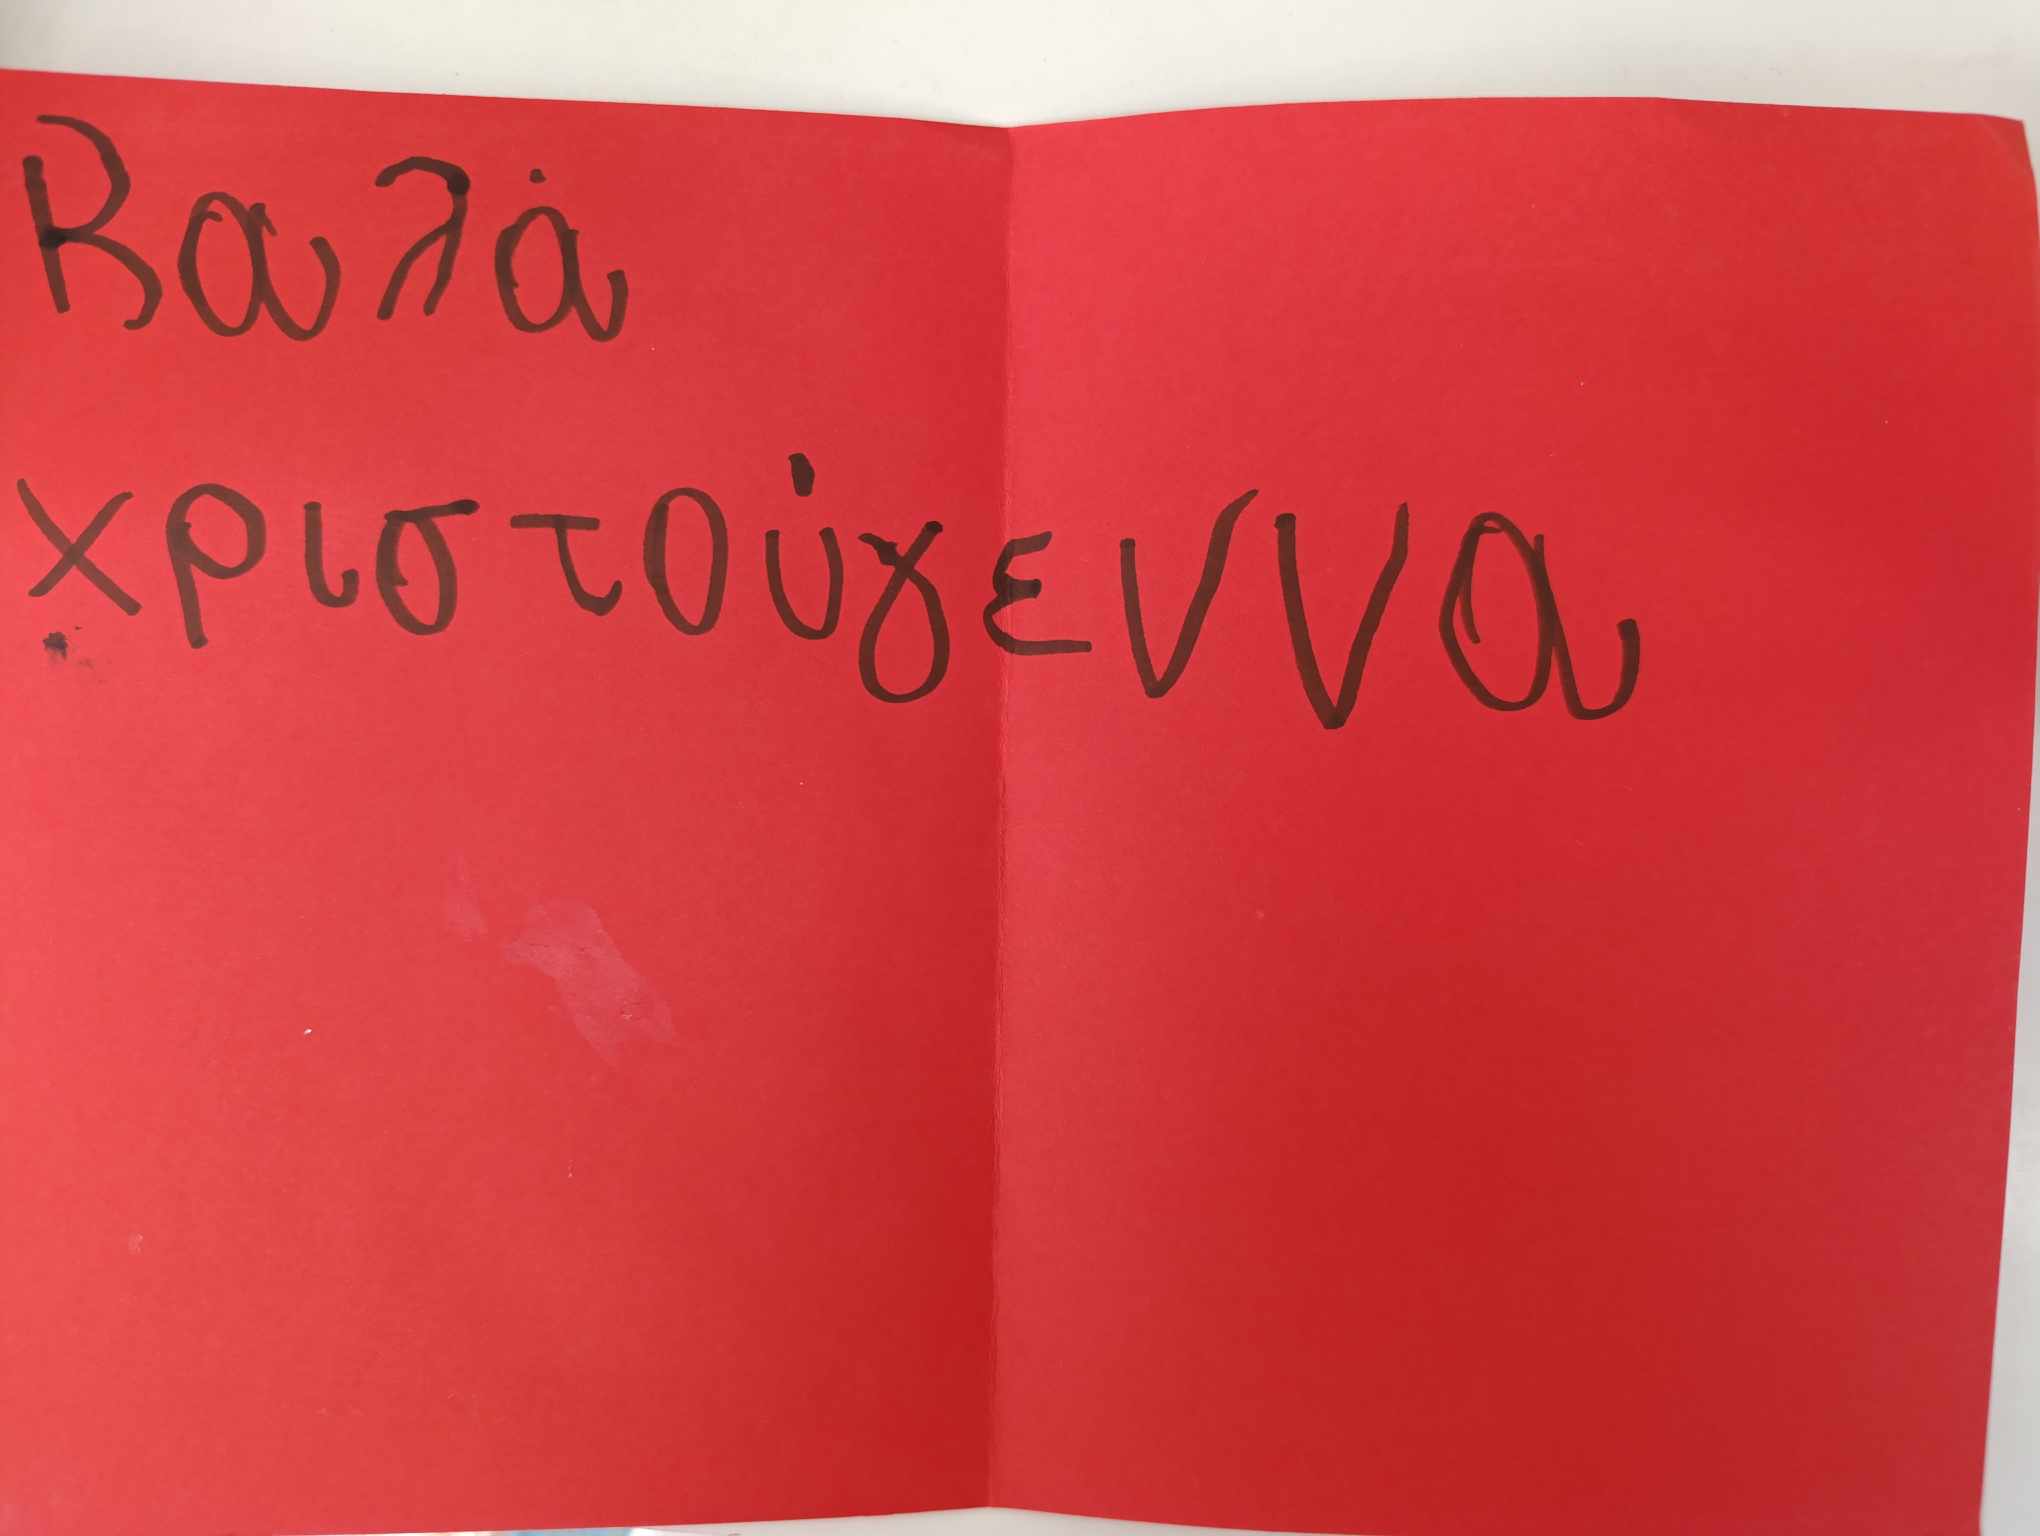 Καλά
χριστούγεννα